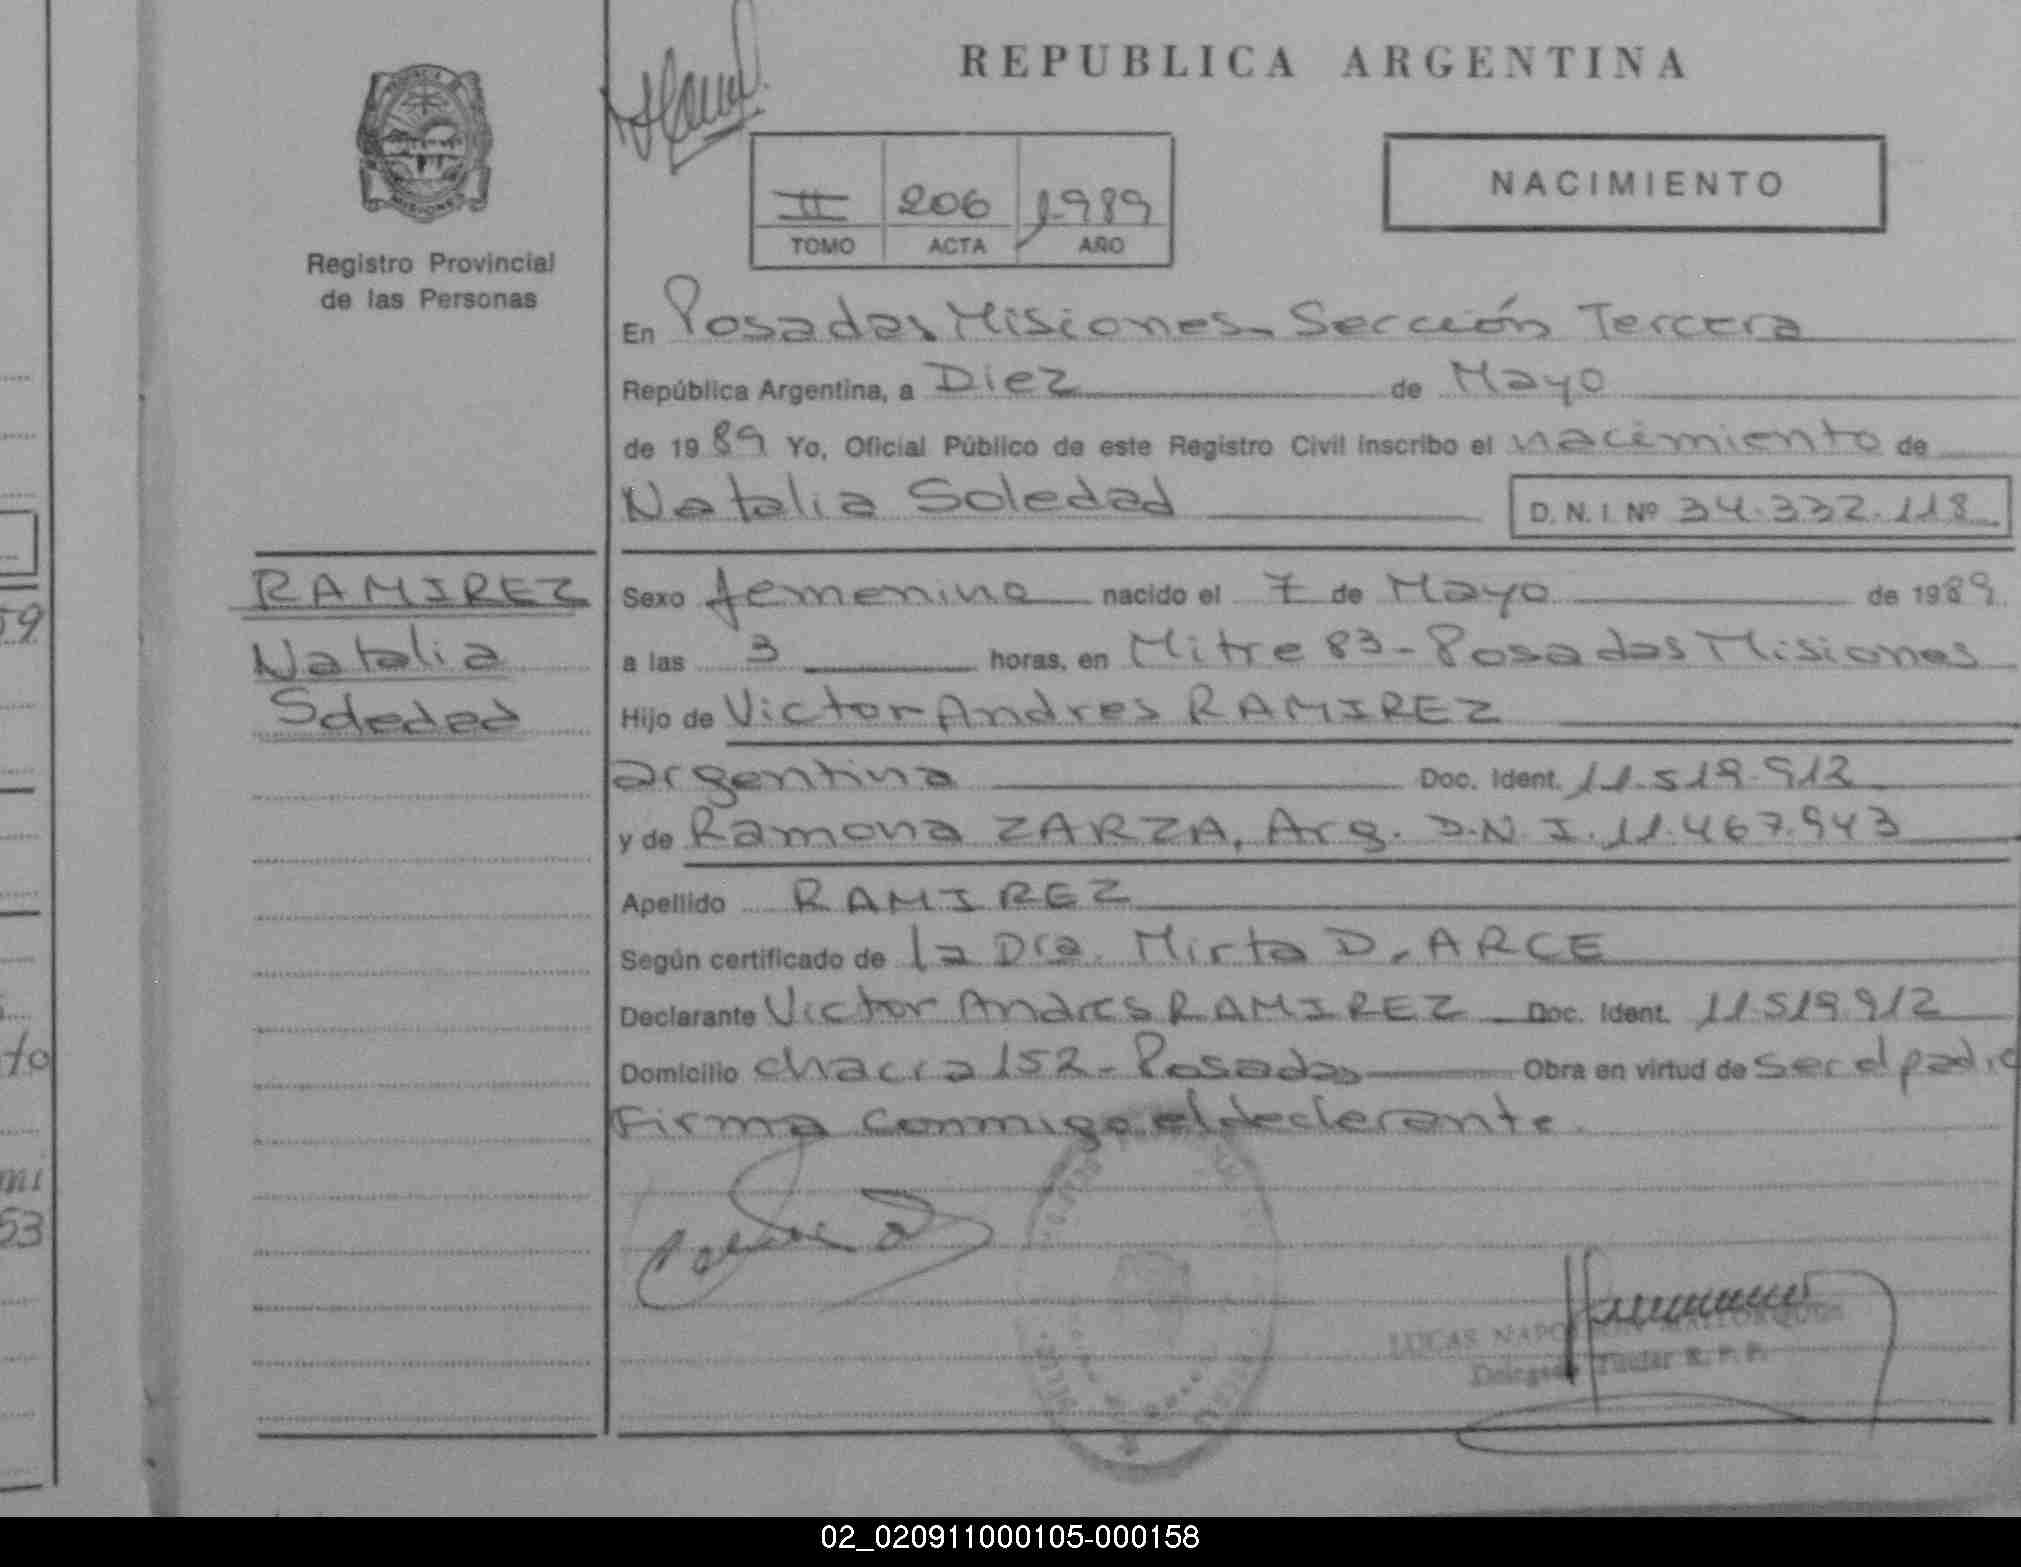 REPUBLICA ARGENTINA
MISIONES
Registro Provincial
de las Personas
II 206 1989
TOMO ACTA AÑO
NACIMIENTO
En Posadas Misiones Sección Tercera
República Argentina, a Diez de Mayo
de 1989 Yo, Oficial Público de este Registro Civil inscribo el nacimiento de
Natalia Soledad
D. N. I. Nº 34.332.118
RAMIREZ
Natalia
Soledad
Sexo femenino nacido el 7 de Mayo de 1989
a las 3 horas, en Mitre 83 - Posadas Misiones
Hijo de Victor Andres RAMIREZ
argentina Doc. Ident. 11.519.912
y de Ramona ZARZA, Arg. D.N.I. 11.467.943
Apellido RAMIREZ
Según certificado de la Dra. Mirta D. ARCE
Declarante Victor Andres RAMIREZ Doc. Ident. 11519912
Domicilio chacra 152 - Posadas Obra en virtud de ser el padre
Firma conmigo el declarante.
LUCAS
Titular R. P. P.
59
to
mi
53
02_020911000105-000158